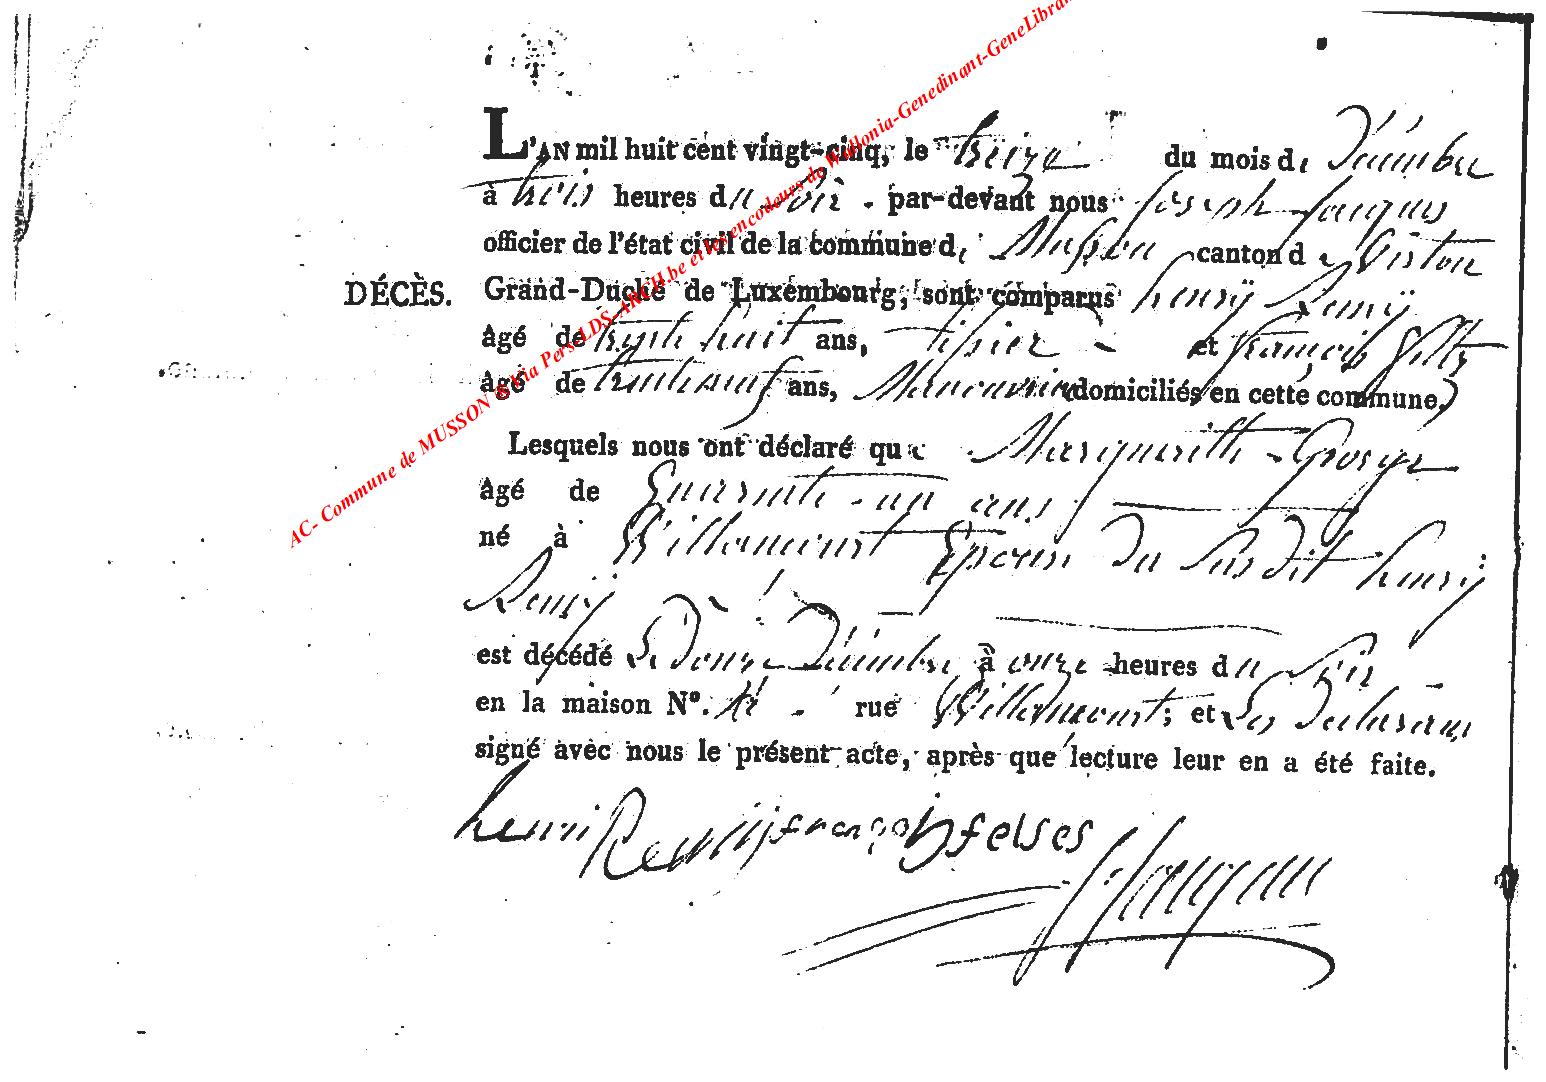 L'AN mil huit cent vingt-cinq, le treize du mois de Décembre
à trois heures du soir par-devant nous Joseph Jacques
officier de l'état civil de la commune de Musson canton de Virton
DÉCÈS. Grand-Duché de Luxembourg, sont comparus henrÿ Remÿ
âgé de trente huit ans, tissier et françois
âgé de trente neuf ans, Manouvrier (domiciliés en cette commune.)
Lesquels nous ont déclaré que Margueritte
âgé de Quarante-un ans
né à Willancourt Epouse du Susdit henrÿ
Remÿ
est décédé Le Douze Décembre à onze heures du Soir
en la maison N°. rue Willancourt; et Les Déclarans
signé avec nous le présent acte, après que lecture leur en a été faite.
henri Remÿ françois felses
J: Jacques
AC- Commune de MUSSON via Pers-LDS-ARCH.be et les encodeurs de Wallonia-Genedinant-GeneLibran